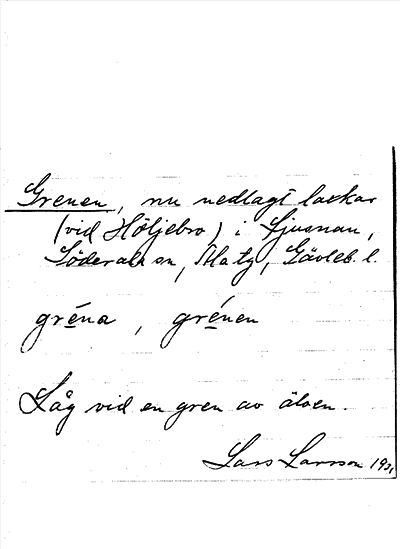 Grenen, nu nedlagt laxkar
(vid Höljebro) i Ljusnan,
Söderala sn, Gävleb. l.
gréna, grénen
Låg vid en gren av älven.
Lars Larsson 1931